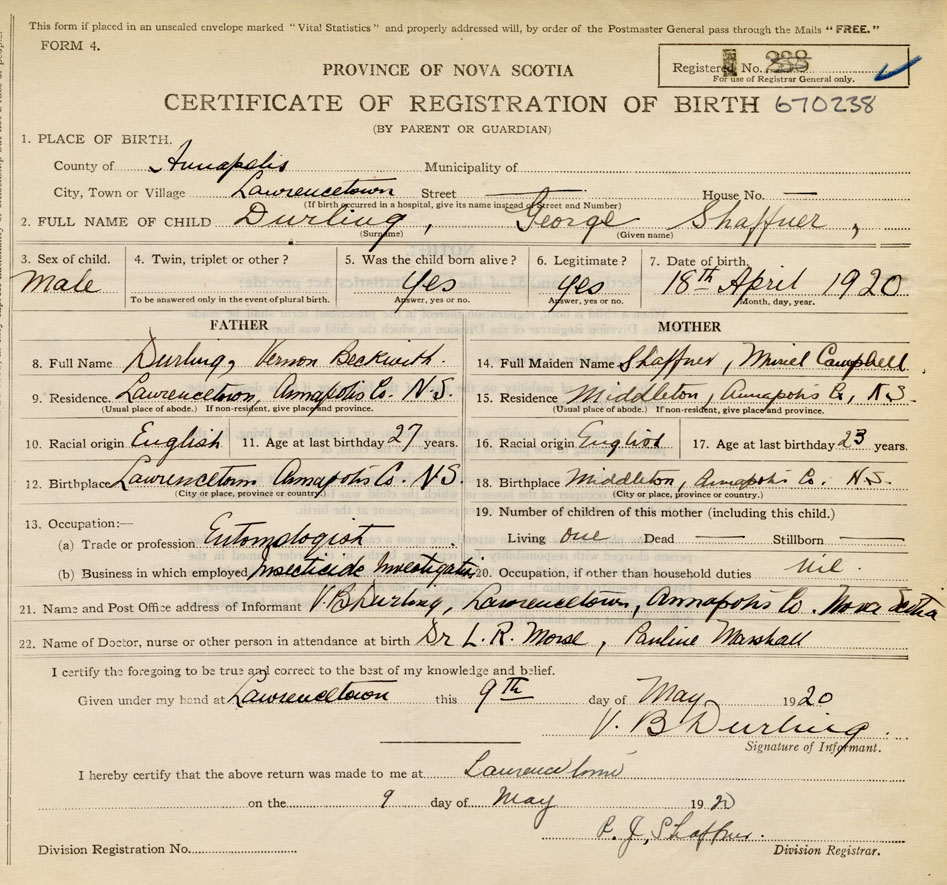 This form if placed in an unsealed envelope marked "Vital Statistics" and properly addressed will, by order of the Postmaster General pass through the Mails "FREE."
FORM 4.
Registered No. 288
For use of Registrar General only.
PROVINCE OF NOVA SCOTIA
CERTIFICATE OF REGISTRATION OF BIRTH 670238
(BY PARENT OR GUARDIAN)
1. PLACE OF BIRTH.
County of Annapolis Municipality of
City, Town or Village Lawrencetown Street — House No. —
(If birth occurred in a hospital, give its name instead of Street and Number)
2. FULL NAME OF CHILD Durling, George Shaffner,
(Surname) (Given name)
3. Sex of child. 4. Twin, triplet or other? 5. Was the child born alive? 6. Legitimate? 7. Date of birth.
Male Yes Yes 18th April 1920
To be answered only in the event of plural birth. Answer, yes or no. Answer, yes or no. Month, day, year.
FATHER
8. Full Name Durling, Vernon Beckwith.
9. Residence. Lawrencetown, Annapolis Co. N.S.
(Usual place of abode.) If non-resident, give place and province.
10. Racial origin English 11. Age at last birthday 27 years.
12. Birthplace Lawrencetown Annapolis Co. N.S.
(City or place, province or country.)
13. Occupation:—
(a) Trade or profession Entomologist
(b) Business in which employed Insecticide Investigator
MOTHER
14. Full Maiden Name Shaffner, Muriel Campbell
15. Residence Middleton, Annapolis Co, N.S.
(Usual place of abode.) If non-resident, give place and province.
16. Racial origin English 17. Age at last birthday 23 years.
18. Birthplace Middleton, Annapolis Co. N.S.
(City or place, province or country.)
19. Number of children of this mother (including this child.)
Living one Dead — Stillborn —
20. Occupation, if other than household duties nil.
21. Name and Post Office address of Informant V. B Durling, Lawrencetown, Annapolis Co. Nova Scotia
22. Name of Doctor, nurse or other person in attendance at birth Dr L. R. Morse, Pauline Marshall
I certify the foregoing to be true and correct to the best of my knowledge and belief.
Given under my hand at Lawrencetown this 9th day of May 1920
V. B Durling.
Signature of Informant.
I hereby certify that the above return was made to me at Lawrencetown
on the 9 day of May 1920
Shaffner.
Division Registration No. Division Registrar.